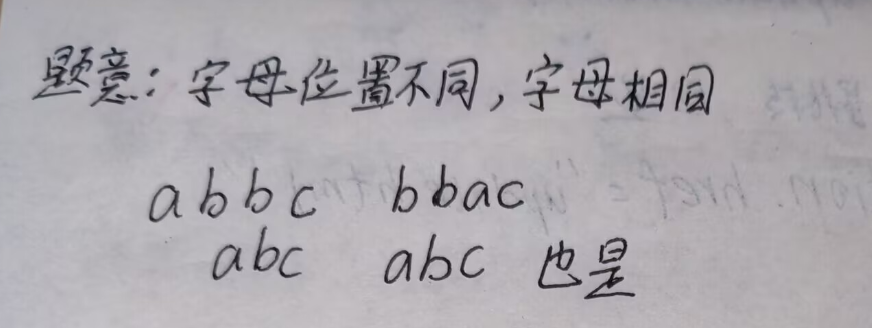 题意：字母位置不同，字母相同
abbc bbac
abc abc 也是